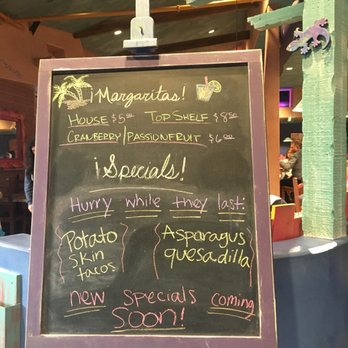 ¡Margaritas!
HOUSE $5.00 TOP SHELF $8.50
CRANBERRY/PASSIONFRUIT $6.00
¡Specials!
Hurry while they last:
Potato Asparagus
skin quesadilla
tacos
new specials coming
soon!